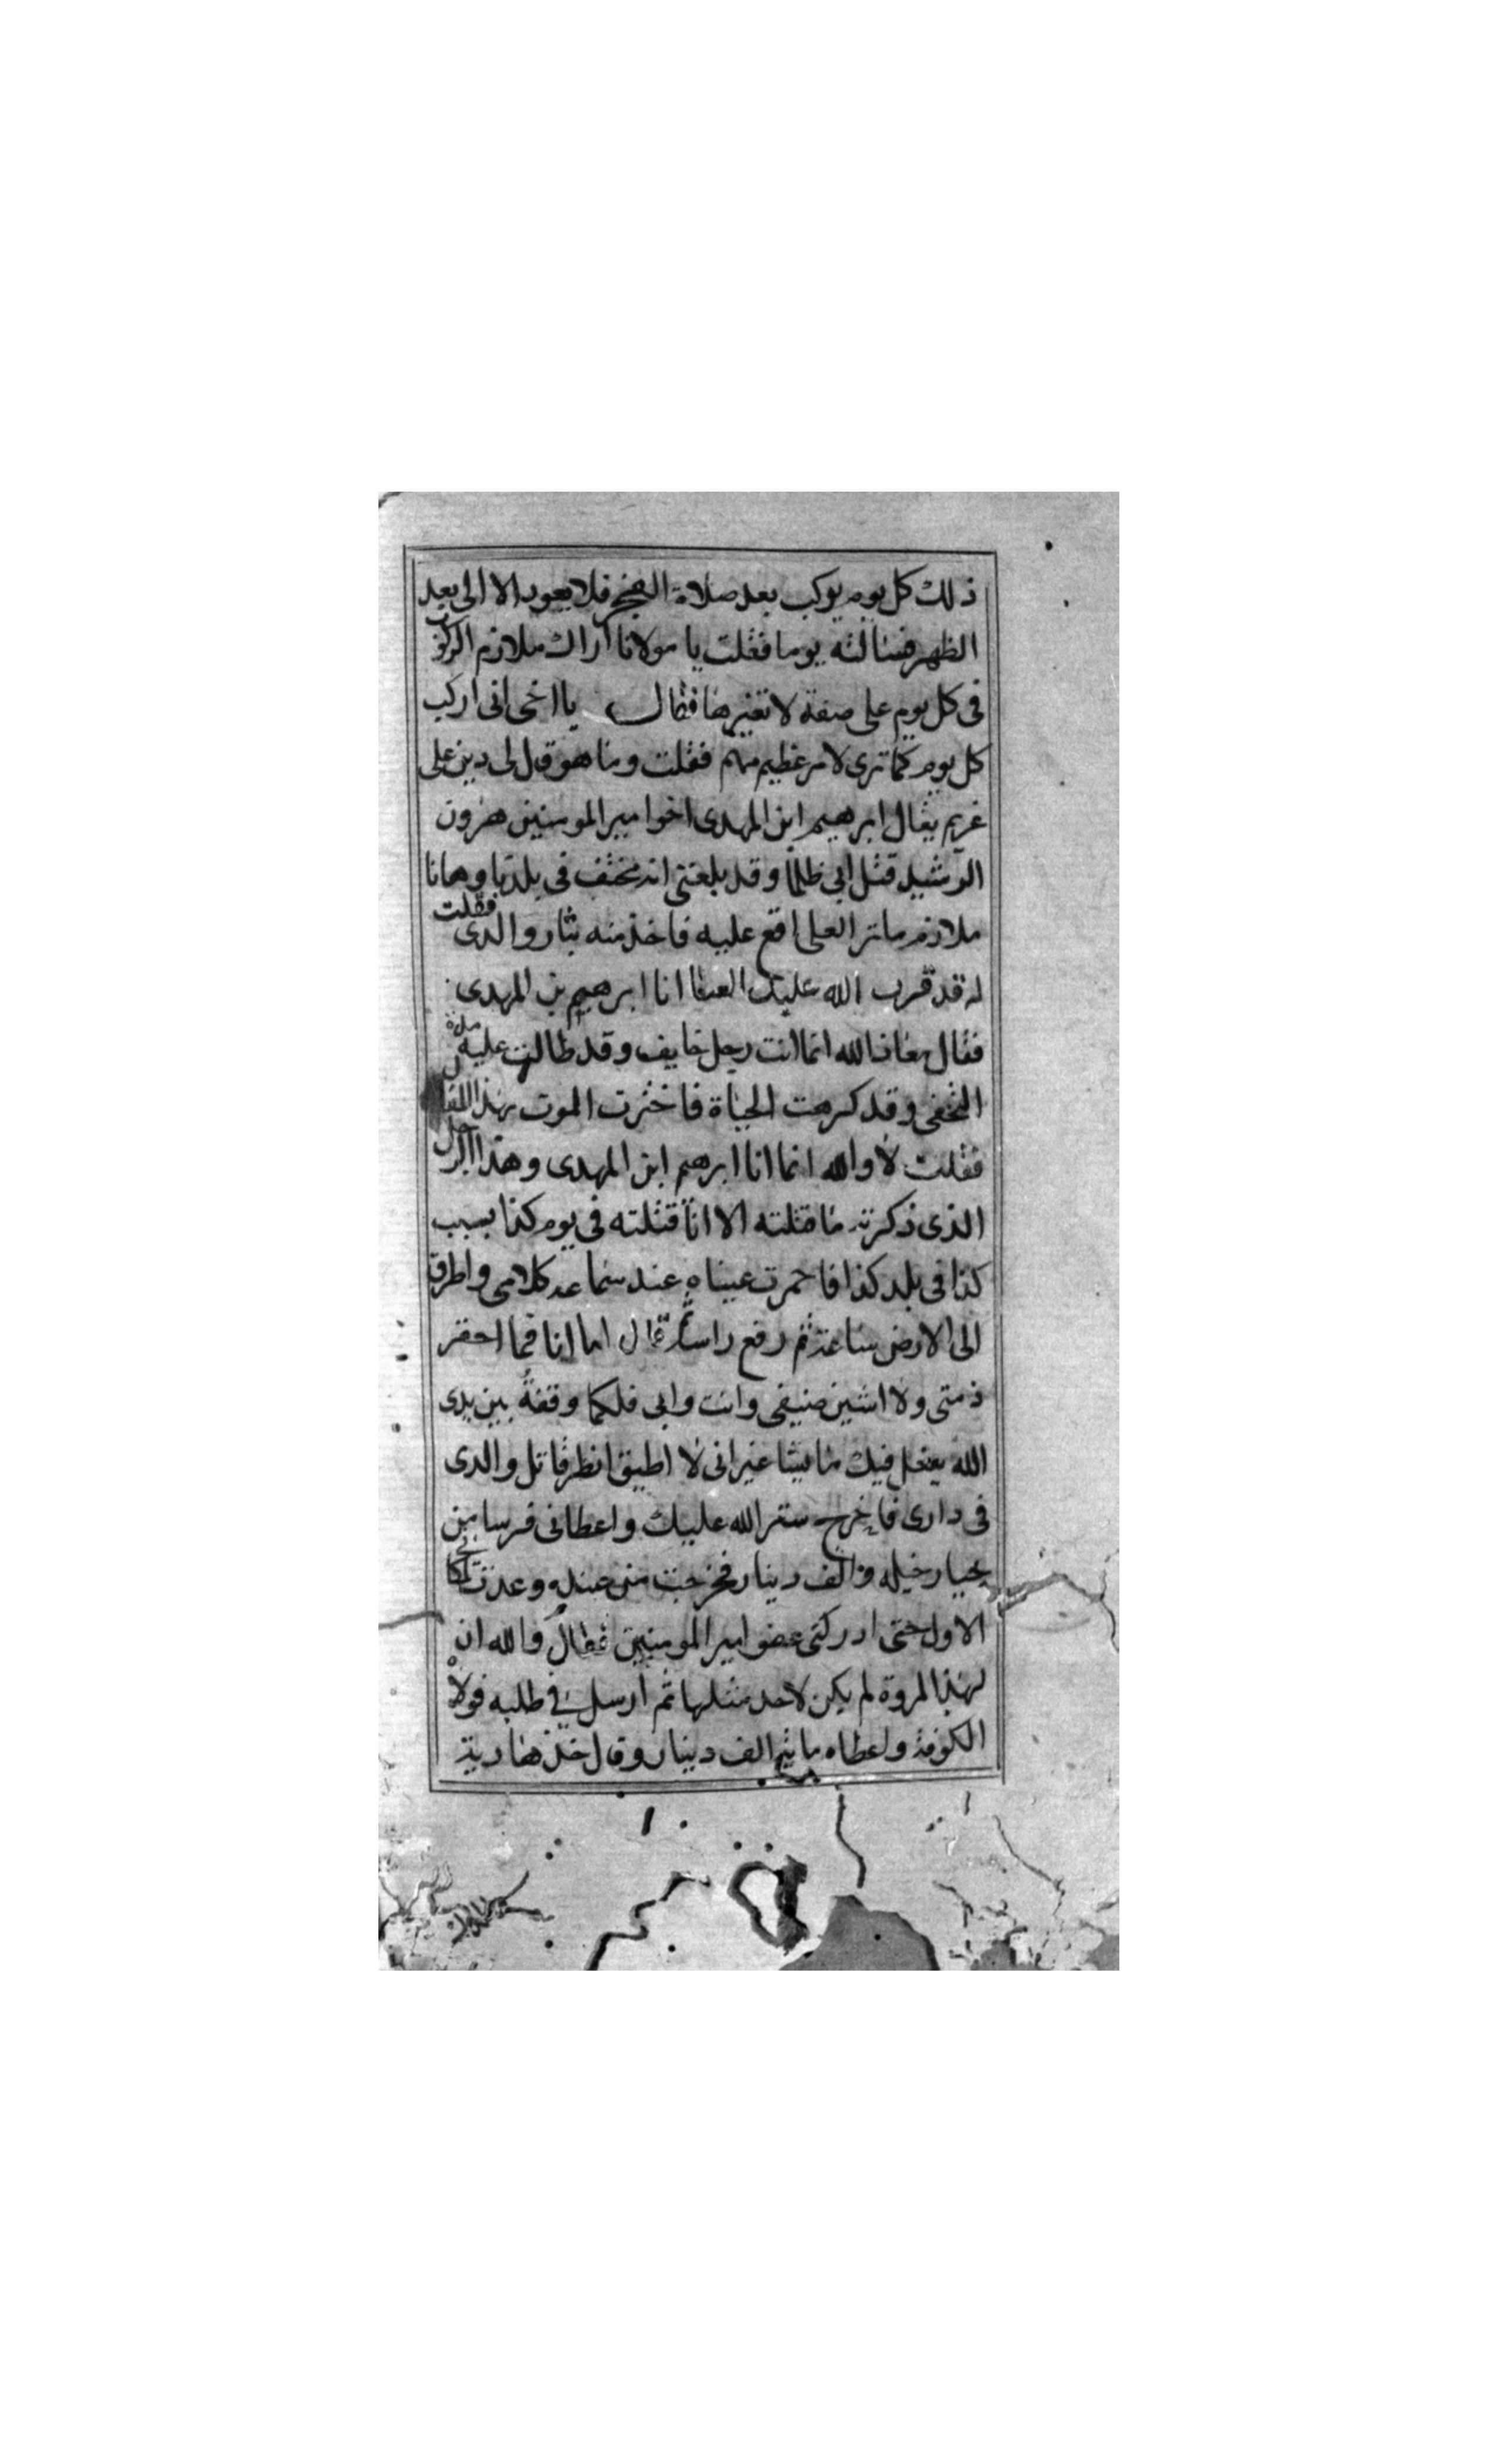 ذلك كل يوم يركب بعد صلاة الفجر فلا يعود الا الى بعد
الظهر فسالته يوما فقلت يا مولانا اراك ملازم الركوب
فى كل يوم على صفة لا تغيرها فقال يا اخى انى اركب
كل يوم كما ترى لامر عظيم مهم فقلت وما هو قال لى دين على
غريم يقال ابرهيم ابن المهدى اخو امير المومنين هرون
الرشيد قتل ابى ظلما وقد بلغنى انه مختف فى بلدنا وها انا
ملازم ما ترا لعلى اقع عليه فاخذ منه بثار والدى فقلت
له قد قرب الله عليك العنا انا ابرهيم بن المهدى
فقال معاذ الله انما انت رجل خايف وقد طالت عليه مدة
التخفى وقد كرهت الحياة فاخترت الموت بهذا المقال
فقلت لا والله انما انا ابرهيم ابن المهدى وهذا الرجل
الذى ذكرته ما قتلته الا انا قتلته فى يوم كذا بسبب
كذا فى بلد كذا فاحمرت عيناه عند سماعه كلامى واطرق
الى الارض ساعة ثم رفع راسه قال اما انا فما احقر
ذمتى ولا اشين ضيفى وانت وابى فلكما وقفة بين يدى
الله يفعل فيك ما يشا غير انى لا اطيق انظر قاتل والدى
فى دارى فاخرج ستر الله عليك واعطانى فرسا من
خيار خيله والف دينار فخرجت من عنده وعدت لمكانى
الاول حتى ادركنى عفو امير المومنين فقال والله ان
لهذا المروة لم يكن لاحد مثلها ثم ارسل فى طلبه فولاه
الكوفة واعطاه مايتى الف دينار وقال خذ هذا دية